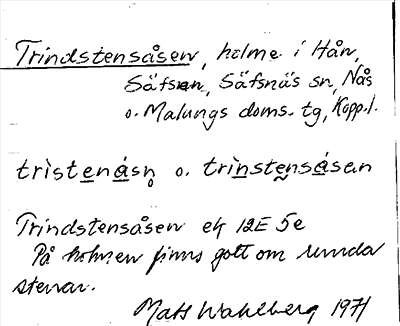 Trindstensåsen, holme i Hån,
Säfsen, Säfsnäs sn, Nås
o. Malungs doms. tg, Kopp.l.
tristenásn̥ o. trinstensásan
Trindstensåsen ek 12E 5e
På holmen finns gott om runda
stenar.
Mats Wahlberg 1971